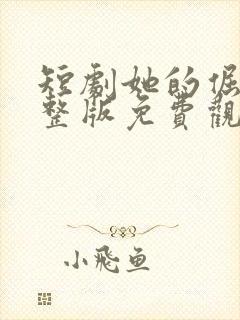 短劇她的倔
整版免費觀
小飛魚